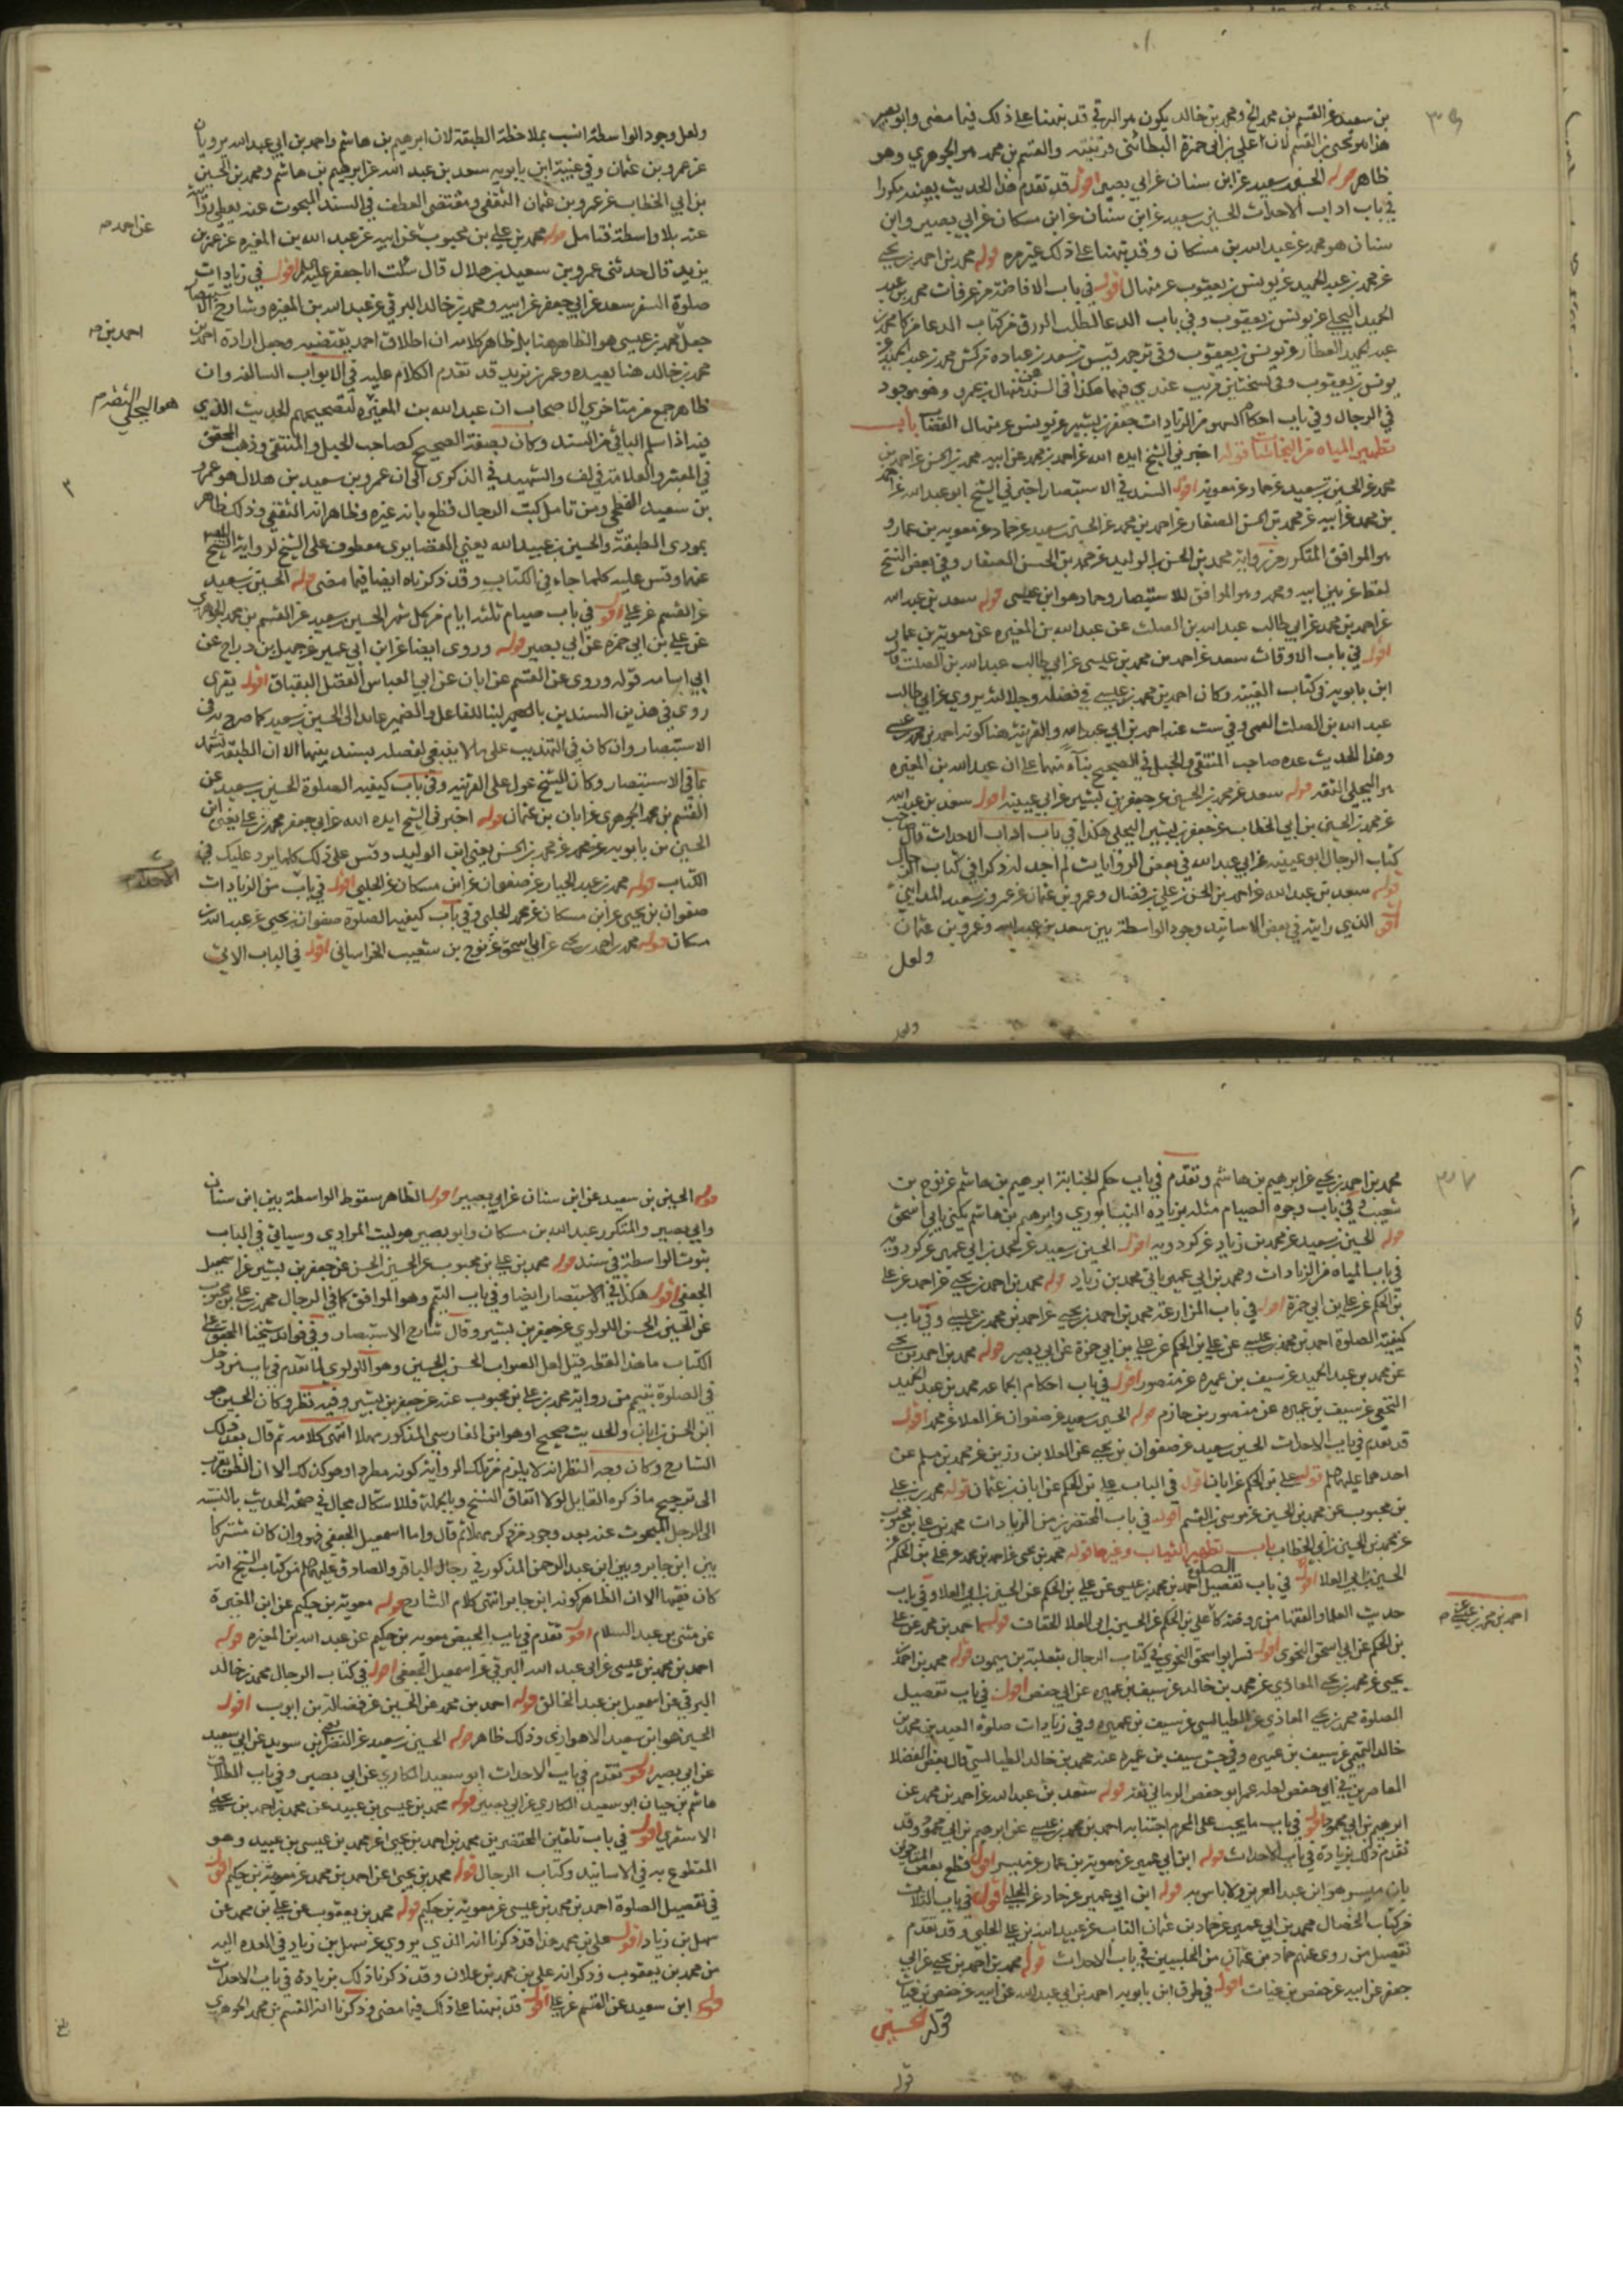 بن سعيد عن القسم بن محمد الخ ومحمد بن خالد يكون هو البرقي قد نبهنا على ذلك فيما مضى وابو بصير
هذا هو يحيى بن القسم لان علي بن ابي حمزة البطائني والقسم بن محمد هو الجوهري وهو
ظاهر قوله الحسين بن سعيد عن ابن سنان عن ابي بصير اقول قد تقدم هذا الحديث بعينه مكررا
في باب اداب الاحداث الحسين بن سعيد عن ابن سنان عن ابن مسكان عن ابي بصير وابن
سنان هو محمد عن عبد الله بن مسكان وقد نبهنا على ذلك غير مره قوله محمد بن احمد بن يحيى
عن محمد بن عبد الحميد عن يونس بن يعقوب عن منهال اقول في باب الافاضة من عرفات محمد بن عبد
الحميد البجلي عن يونس بن يعقوب وفي باب الدعا لطلب الرزق من كتاب الدعا
عبد الحميد العطار عن يونس بن يعقوب وفي ترجمة قيس بن سعد بن عباده من كش محمد بن عبد الحميد عن
يونس بن يعقوب وفي نسختين قريب عندي فيهما هكذا في السند منهال بن عمرو وهو موجود
في الرجال وفي باب احكام السهو من الزيادات جعفر بن بشير عن يونس عن منهال القصاب باب
تطهير المياه من النجاسات قوله اخبرني الشيخ ايده الله عن احمد بن محمد عن ابيه محمد بن الحسن عن احمد بن
محمد عن الحسين بن سعيد عن حماد عن معويه اقول السند في الاستبصار اخبرني الشيخ ابو عبد الله عن احمد
بن محمد عن ابيه عن محمد بن الحسن الصفار عن احمد بن محمد عن الحسين بن سعيد عن حماد عن معويه بن عمار و
هو الموافق المتكرر من رواية محمد بن الحسن بن الوليد عن محمد بن الحسن الصفار وفي بعض النسخ
لفظ عن بين ابيه ومحمد وهو الموافق للاستبصار وحماد هو ابن عيسى قوله سعد بن عبد الله
عن احمد بن محمد عن ابي طالب عبد الله بن الصلت عن عبد الله بن المغيره عن معويه بن عمار
اقول في باب الاوقات سعد عن احمد بن محمد بن عيسى عن ابي طالب عبد الله بن الصلت قال
ابن بابويه في كتاب الغيبة وكان احمد بن محمد بن عيسى في فضله وجلالته يروي عن ابي طالب
عبد الله بن الصلت القمي وفي ست عنه احمد بن ابي عبد الله والقرينة هنا كونه احمد بن محمد بن عيسى
وهذا الحديث عده صاحب المنتقى والحبل في الصحيح بناء منهما على ان عبد الله بن المغيره
هو البجلي الثقه قوله سعد عن محمد بن الحسين عن جعفر بن بشير عن ابي عيينه اقول سعد بن عبد الله
عن محمد بن الحسين بن ابي الخطاب عن جعفر بن بشير البجلي هكذا في باب اداب الاحداث قال صاحب
كتاب الرجال ابو عيينه عن ابي عبد الله في بعض الروايات لم اجد له ذكرا في كتاب الرجال
قوله سعد بن عبد الله عن احمد بن الحسن بن علي بن فضال وعمرو بن عثمان عن عمرو بن سعيد المدايني
اقول الذي رايته في بعض الاسانيد وجود الواسطة بين سعد بن عبد الله وعمرو بن عثمان
ولعل
ولعل وجود الواسطة انسب بملاحظة الطبقة لان ابرهيم بن هاشم واحمد بن ابي عبد الله يرويان
عن عمرو بن عثمان وفي غيبة ابن بابويه سعد بن عبد الله عن ابرهيم بن هاشم ومحمد بن الحسين
بن ابي الخطاب عن عمرو بن عثمان الثقفي ومقتضى العطف في السند المبحوث عنه
عنه بلا واسطة فتامل قوله محمد بن علي بن محبوب عن ابيه عن عبد الله بن المغيره عن عمر بن
يزيد قال حدثني عمرو بن سعيد بن هلال قال سئلت ابا جعفر عليه السلم اقول في زيادات
صلوة السفر سعد عن ابي جعفر عن ابيه ومحمد بن خالد البرقي عن عبد الله بن المغيره وشارح الاستبصار
جعل محمد بن عيسى هو الظاهر هنا بل ظاهر كلامه ان اطلاق احمد يقتضيه وجعل ارادة احمد بن
محمد بن خالد هنا بعيده وعمر بن يزيد قد تقدم الكلام عليه في الابواب السالفه وان
ظاهر جمع من متاخري الاصحاب ان عبد الله بن المغيره لتصحيحهم الحديث الذي
فيه اذا سلم الباقي من السند وكان بصفة الصحيح كصاحب الحبل والمنتقى وذهب المحقق
في المعتبر والعلامة في لف والشهيد في الذكرى الى ان عمرو بن سعيد بن هلال هو عمرو
بن سعيد الفطحي ومن تامل كتب الرجال قطع بانه غيره وظاهرا انه الثقفي وذلك ظاهر
بموردي الطبقة والحسين بن عبيد الله يعني الغضايري معطوف على الشيخ لرواية الشيخ
عنهما وقس عليه كلما جاء في الكتاب وقد ذكرناه ايضا فيما مضى قوله الحسين بن سعيد
عن القسم عن علي اقول في باب صيام ثلثه ايام من كل شهر الحسين بن سعيد عن القسم بن محمد الجوهري
عن علي بن ابي حمزه عن ابي بصير قوله وروى ايضا عن ابن ابي عمير عن جميل بن دراج عن
ابي اسامه قوله وروى عن القسم عن ابان عن ابي العباس الفضل البقباق اقول يقرى
روى في هذين السندين بالبنا للفاعل والضمير عايد الى الحسين بن سعيد كما صرح به في
الاستبصار وان كان في التهذيب على ما لا ينبغي لفصله بسند بينهما الا ان الطبقه تشهد
بما في الاستبصار وكان الشيخ عول على القرينه وفي باب كيفيه الصلوة الحسين بن سعيد عن
القسم بن محمد الجوهري عن ابان بن عثمان قوله اخبرني الشيخ ايده الله عن ابي جعفر محمد بن علي يعني ابن
الحسين بن بابويه عن محمد بن الحسن يعني ابن الوليد وقس على ذلك كلما يرد عليك في
الكتاب قوله محمد بن عبد الجبار عن صفوان عن ابن مسكان عن الحلبي اقول في باب من الزيادات
صفوان بن يحيى عن ابن مسكان عن محمد الحلبي وفي باب كيفيه الصلوة صفوان بن يحيى عن عبد الله بن
مسكان قوله محمد بن احمد بن يحيى عن ابي اسحق عن نوح بن شعيب الخراساني اقول في الباب الاتي
عن احمد م
احمد بن م
هو البجلي الثقه م
٣
محمد بن احمد بن يحيى عن ابرهيم بن هاشم وتقدم في باب حكم الجنابة ابرهيم بن هاشم عن نوح بن
شعيب وفي باب وجوه الصيام مثله بزيادة النيسابوري وابرهيم بن هاشم يكنى بابي اسحق
قوله الحسين بن سعيد عن محمد بن زياد عن كردويه اقول الحسين بن سعيد عن محمد بن ابي عمير عن كردويه
في باب المياه من الزيادات ومحمد بن ابي عمير ياتي محمد بن زياد قوله محمد بن احمد بن يحيى عن احمد عن علي
بن الحكم عن علي بن ابي حمزة اقول في باب المزار عنه محمد بن احمد بن يحيى عن احمد بن محمد بن عيسى وفي باب
كيفية الصلوة احمد بن محمد بن عيسى عن علي بن الحكم عن علي بن ابي حمزة عن ابي بصير قوله محمد بن احمد بن يحيى
عن محمد بن عبد الحميد عن سيف بن عميره عن منصور اقول في باب احكام الجماعه محمد بن عبد الحميد
النخعي عن سيف بن عميره عن منصور بن حازم قوله الحسين بن سعيد عن صفوان عن العلا عن محمد اقول
قد تقدم في باب الاحداث الحسين بن سعيد عن صفوان بن يحيى عن العلا بن رزين عن محمد بن مسلم عن
احدهما عليهما السلم قوله علي بن الحكم عن ابان اقول في الباب علي بن الحكم عن ابان بن عثمان قوله محمد بن علي
بن محبوب عن محمد بن الحسين عن موسى بن القسم اقول في باب المحتضر بن من الزيادات محمد بن علي بن محبوب
عن محمد بن الحسين بن ابي الخطاب باب تطهير الثياب وغيرها قوله محمد بن يحيى عن احمد بن محمد عن علي بن الحكم عن
الحسين بن ابي العلا اقول في باب تفصيل الصلوة احمد بن محمد بن عيسى عن علي بن الحكم عن الحسين بن ابي العلا وفي باب
حديث العلما والفقها من روضة كا علي بن الحكم عن الحسين بن ابي العلا الخفاف قوله احمد بن محمد عن علي
بن الحكم عن ابي اسحق النحوي اقول فسر ابو اسحق النحوي في كتاب الرجال بثعلبة بن ميمون قوله محمد بن احمد بن
يحيى عن محمد بن يحيى المعاذي عن محمد بن خالد عن سيف بن عميره عن ابي حفص اقول في باب تفصيل
الصلوة محمد بن يحيى المعاذي عن الطيالسي عن سيف بن عميره وفي زيادات صلوة العيد بن محمد بن
خالد التميمي عن سيف بن عميره وفي جش سيف بن عميره عنه محمد بن خالد الطيالسي قال بعض الفضلا
المعاصرين في ابي حفص لعله عمر ابو حفص الرماني ثقه قوله سعد بن عبد الله عن احمد بن محمد عن
ابرهيم بن ابي محمود اقول في باب ما يجب على المحرم اجتنابه احمد بن محمد بن عيسى عن ابرهيم بن ابي محمود وقد
تقدم ذلك بزيادة في باب الاحداث قوله ابن ابي عمير عن معويه بن عمار عن ميسر اقول قطع بعض المتاخرين
بان ميسر هو ابن عبد العزيز ولا باس به قوله ابن ابي عمير عن حماد عن الحلبي اقول في باب الثلاث
من كتاب الخصال محمد بن ابي عمير عن حماد بن عثمان الناب عن عبيد الله بن علي الحلبي وقد تقدم
تفصيل من روى عنهم حماد بن عثمان من الحلبيين في باب الاحداث قوله محمد بن احمد بن يحيى عن ابي
جعفر عن ابيه عن حفص بن غياث اقول في طرق ابن بابويه احمد بن ابي عبد الله عن ابيه عن حفص بن غياث
قوله الحسين
احمد بن محمد بن عيسى عن م
قوله الحسين بن سعيد عن ابن سنان عن ابي بصير اقول الظاهر سقوط الواسطة بين ابن سنان
وابي بصير والمتكرر عبد الله بن مسكان وابو بصير هو ليث المرادي وسياتي في الباب
ثبوت الواسطة في سند قوله محمد بن علي بن محبوب عن الحسين بن الحسن عن جعفر بن بشير عن اسمعيل
الجعفي اقول هكذا في الاستبصار ايضا وفي باب التيمم وهو الموافق كما في الرجال محمد بن علي بن محبوب
عن الحسين بن الحسن اللولوي عن جعفر بن بشير وقال شارح الاستبصار وفي فوائد شيخنا المحقق على
الكتاب ما هذا لفظه قيل لعل الصواب الحسن بن الحسين وهو اللولوي لما تقدم في باب من دخل
في الصلوة بتيمم من رواية محمد بن علي بن محبوب عنه عن جعفر بن بشير وفيه نظر وكان الحسين هو
ابن الحسن بن ابان والحديث صحيح او هو ابن الفارسي المذكور مهملا انتهى كلامه ثم قال بعد ذلك
الشارح وكان وجه النظر انه لا يلزم من تلك الرواية كونه مطردا وهو كذلك الا ان الظن يقرب
الى ترجيح ما ذكره القايل لولا اتفاق النسخ وبالجملة فللاشكال مجال في صحة الحديث بالنسبه
الى الرجل المبحوث عنه بعد وجود من ذكر مهملا ثم قال واما اسمعيل الجعفي فهو وان كان مشتركا
بين ابن جابر وبين ابن عبد الرحمن المذكور في رجال الباقر والصادق عليهما السلم من كتاب الشيخ انه
كان فقيها الا ان الظاهر كونه ابن جابر انتهى كلام الشارح قوله معويه بن حكيم عن ابن المغيرة
عن مثنى بن عبد السلام اقول تقدم في باب الحيض معويه بن حكيم عن عبد الله بن المغيره قوله
احمد بن محمد بن عيسى عن ابي عبد الله البرقي عن اسمعيل الجعفي اقول في كتاب الرجال محمد بن خالد
البرقي عن اسمعيل بن عبد الخالق قوله احمد بن محمد عن الحسين عن فضالة بن ايوب اقول
الحسين هو ابن سعيد الاهوازي وذلك ظاهر قوله الحسين بن سعيد عن النضر بن سويد عن ابي سعيد
عن ابي بصير اقول تقدم في باب الاحداث ابو سعيد المكاري عن ابي بصير وفي باب الطلاق
هاشم بن حيان ابو سعيد المكاري عن ابي بصير قوله محمد بن عيسى بن عبيد عن محمد بن احمد بن يحيى
الاشعري اقول في باب تلقين المحتضرين محمد بن احمد بن يحيى عن محمد بن عيسى بن عبيد وهو
المقطوع به في الاسانيد وكتاب الرجال قوله محمد بن يحيى عن احمد بن محمد عن معويه بن حكيم اقول
في تفصيل الصلوة احمد بن محمد بن عيسى عن معويه بن حكيم قوله محمد بن يعقوب عن علي بن محمد عن
سهل بن زياد اقول علي بن محمد هذا قد ذكرنا انه الذي يروي عن سهل بن زياد في العده اليه
من محمد بن يعقوب وذكر انه علي بن محمد بن علان وقد ذكرنا ذلك بزيادة في باب الاحداث
قوله ابن سعيد عن القسم عن علي اقول قد نبهنا على ذلك فيما مضى وذكرنا انه القسم بن محمد الجوهري